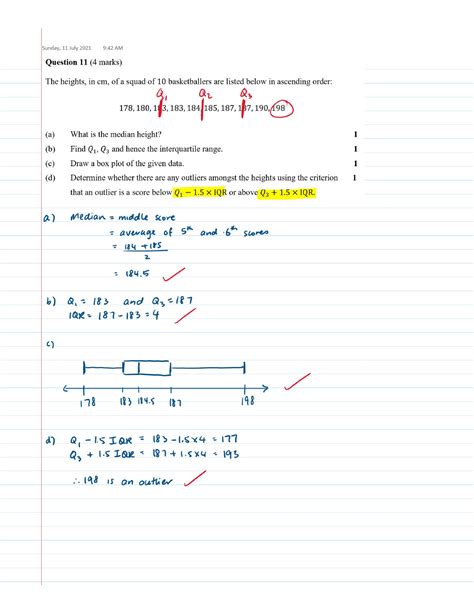 Sunday, 11 July 2021 9:42 AM
Question 11 (4 marks)
The heights, in cm, of a squad of 10 basketballers are listed below in ascending order:
Q₁ Q₂ Q₃
178, 180, 183, 183, 184, 185, 187, 187, 190, 198
(a) What is the median height? 1
(b) Find Q₁, Q₃ and hence the interquartile range. 1
(c) Draw a box plot of the given data. 1
(d) Determine whether there are any outliers amongst the heights using the criterion 1
that an outlier is a score below Q₁ − 1.5 × IQR or above Q₃ + 1.5 × IQR.
a) Median = middle score
= average of 5th and 6th scores
= 184 + 185
2
= 184.5
b) Q₁ = 183 and Q₃ = 187
IQR = 187 - 183 = 4
c)
178 183 184.5 187 198
d) Q₁ - 1.5 IQR = 183 - 1.5 x 4 = 177
Q₃ + 1.5 IQR = 187 + 1.5 x 4 = 193
∴ 198 is an outlier